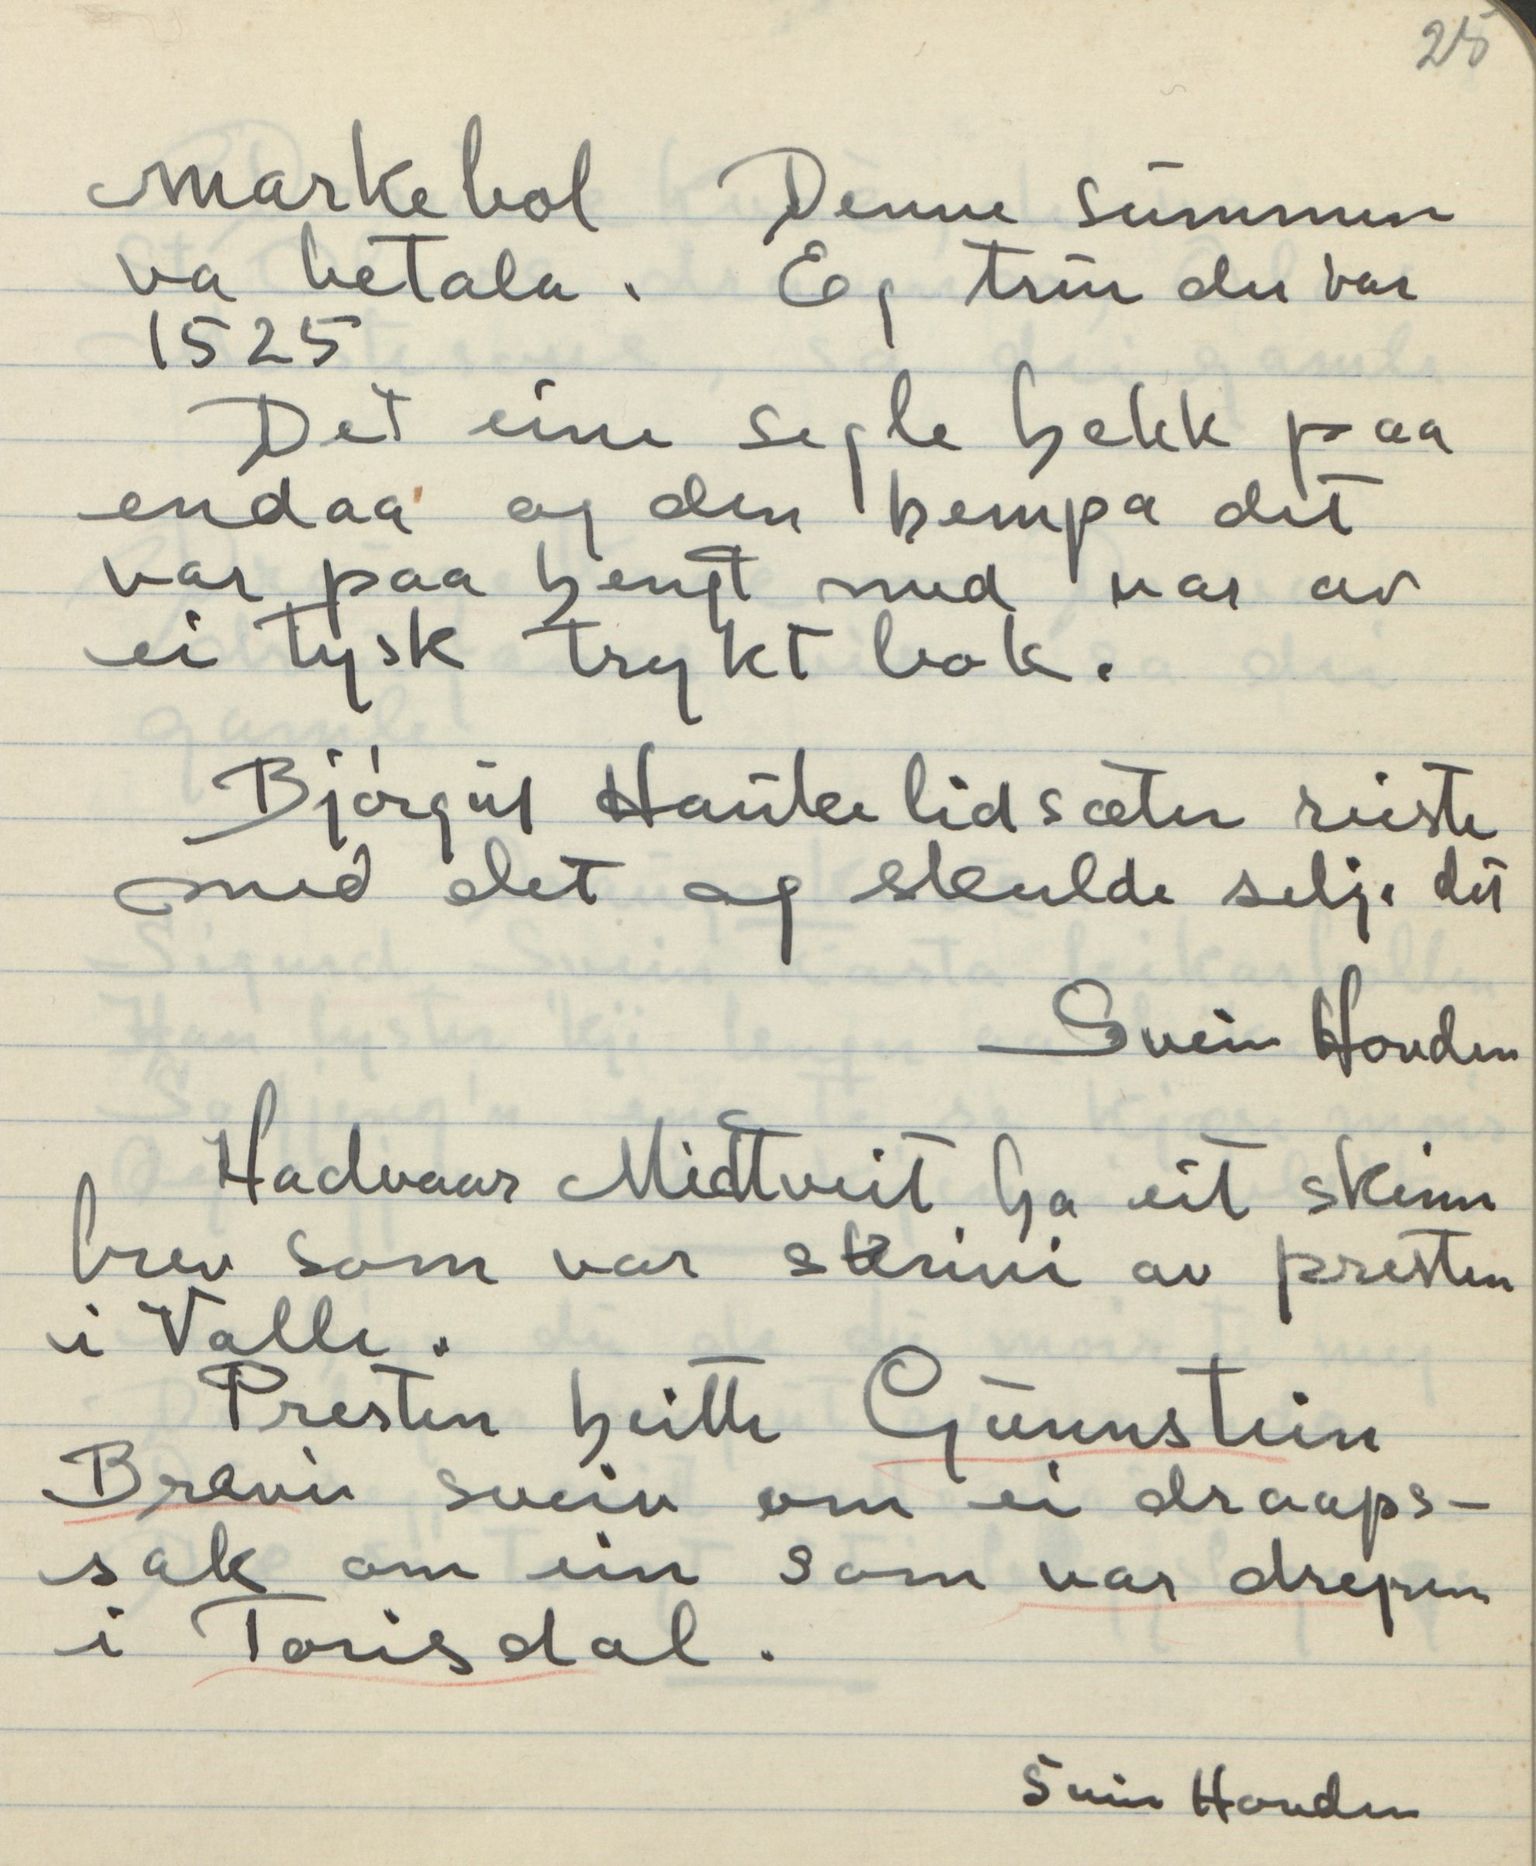 25
markebol Denne summen
va betala. Eg trur der var
1525
Det eine segle hekk paa
endaa og den hempa det
var paa hengt med var av
ei tysk trykt bok.
Bjørgul Haukelidsæter reiste
med det og skulde selje det
Svein Hovden
Hadvaar Midtveit ha eit skinn
brev som var skrivi av presten
i Valle.
Presten heitte Gunnstein
svein om ei draaps-
sak om ein som var drepen
i Torisdal.
Svein Hovden